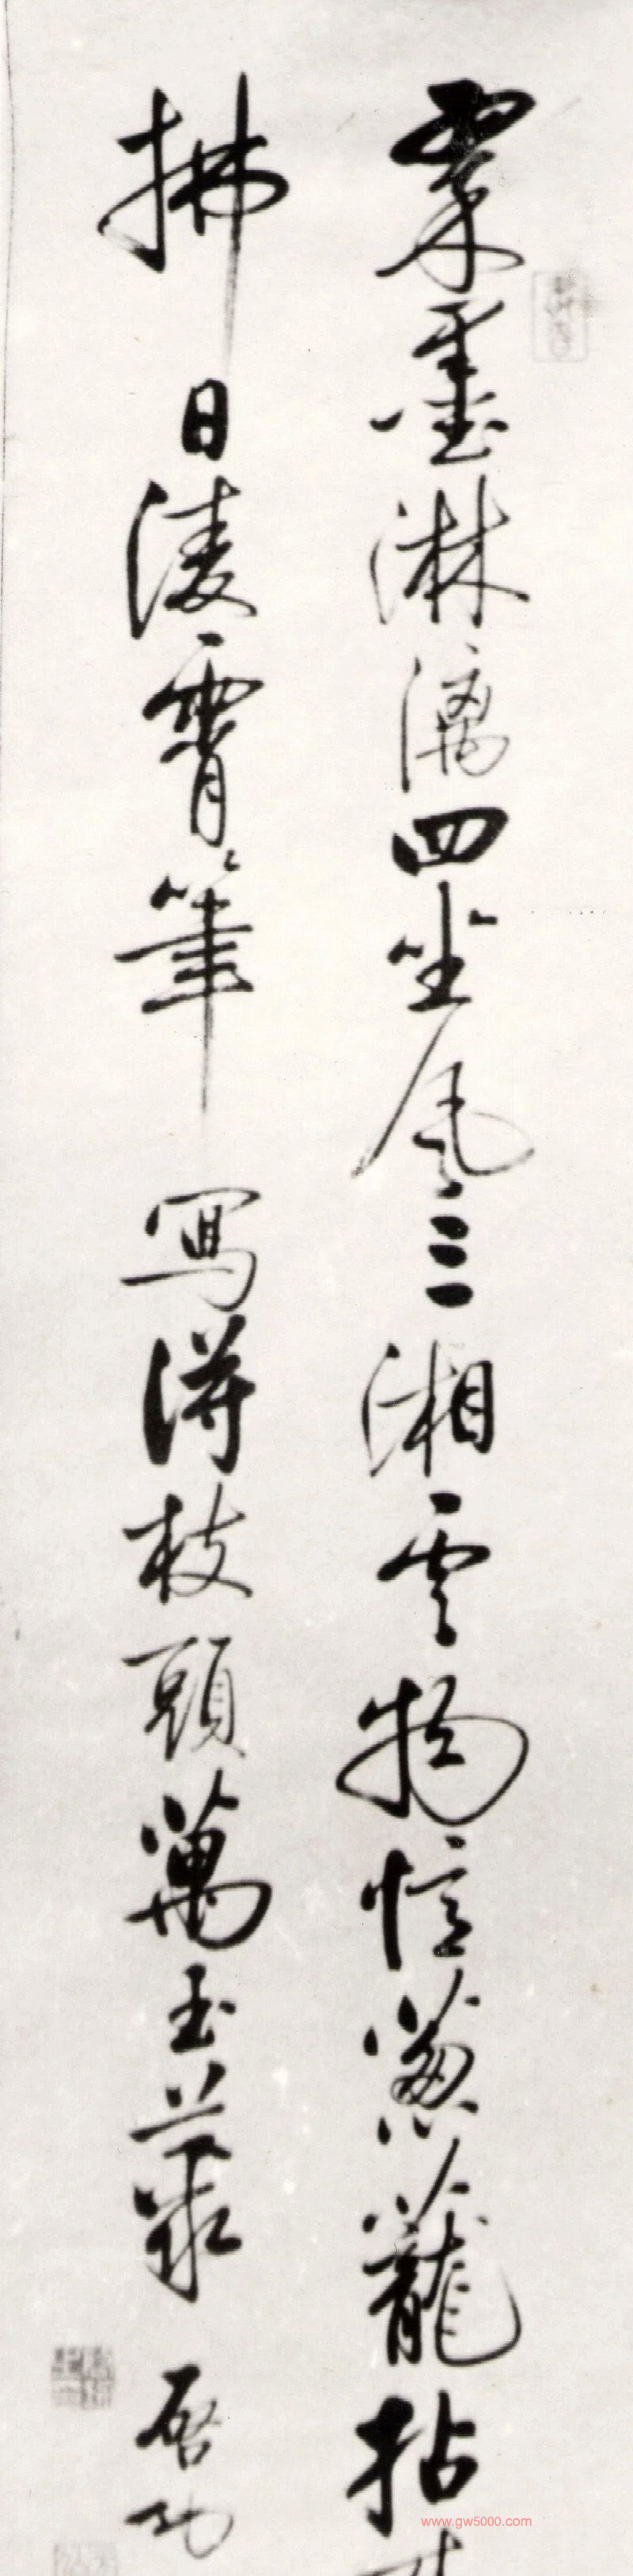 墨淋漓四坐风三湘云物忆葱茏拈
拂日凌霄筆寫得枝頭萬玉叢
啓功
www.gw5000.com